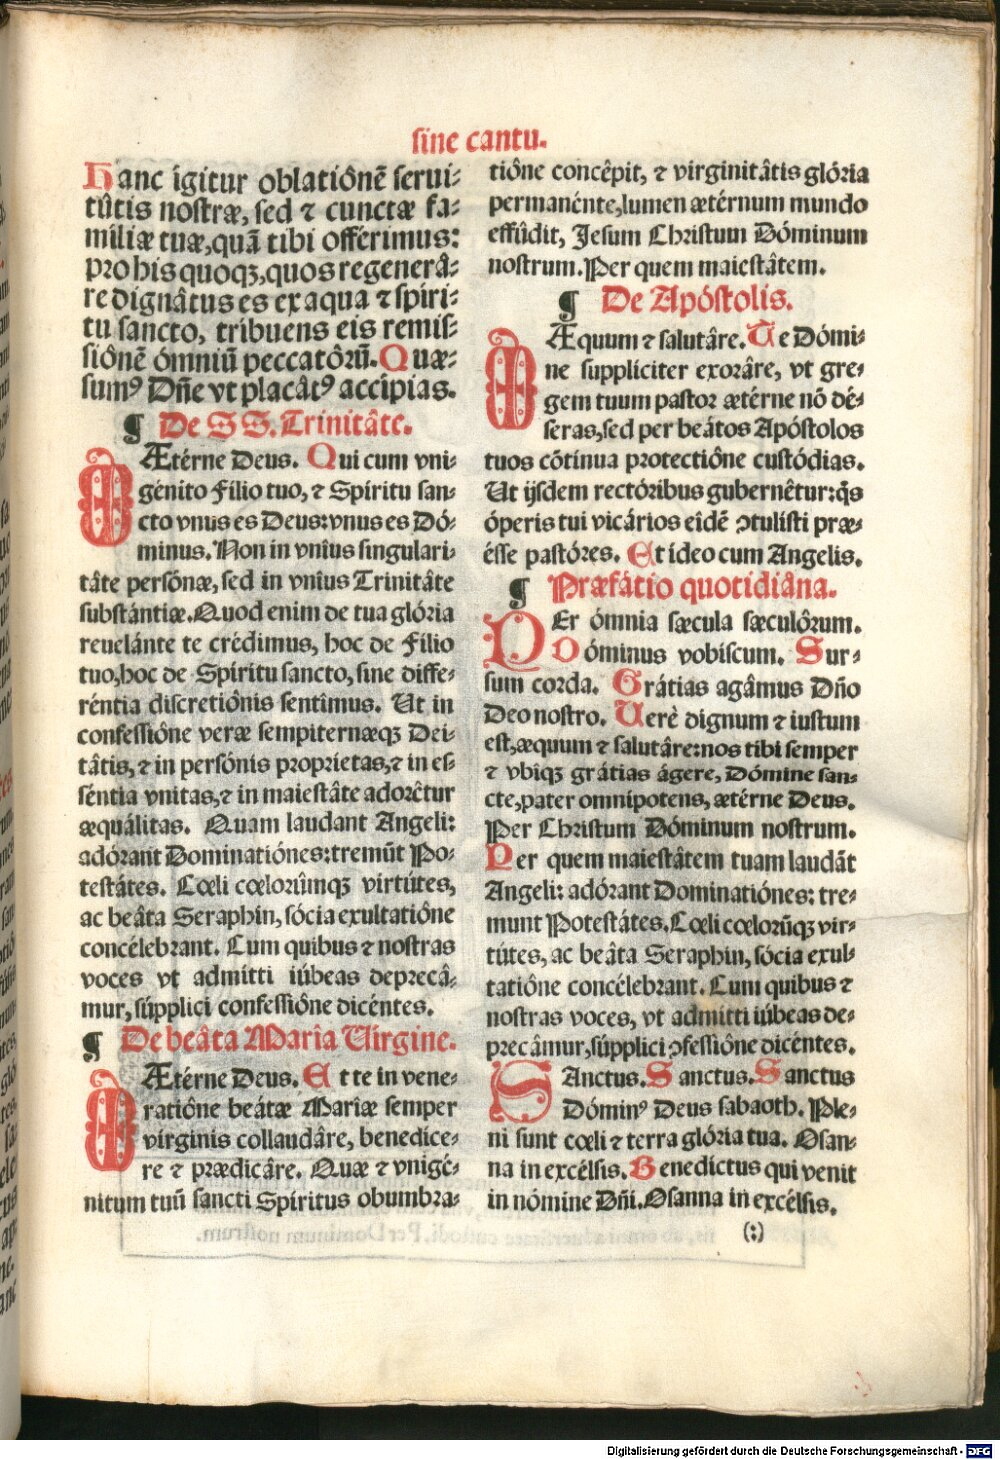 sine cantu.
Hanc ígitur oblatiônē serui⸗
tûtis nostræ, sed ⁊ cunctæ fa⸗
miliæ tuæ, quā tibi offérimus:
pro his quoqȝ, quos regenerâ⸗
re dignâtus es ex aqua ⁊ spíri⸗
tu sancto, tríbuens eis remis⸗
siônē ómniū peccatôrū. Quæ⸗
sumꝰ Dñe vt placâtꝰ accípias.
¶ De S S. Trinitâte.
Ætérne Deus. Qui cum vni⸗
génito Filio tuo, ⁊ Spíritu san⸗
cto vnus es Deus: vnus es Dó⸗
minus. Non in vnîus singulari⸗
tâte persónæ, sed in vnîus Trinitâte
substántiæ. Quod enim de tua glória
reuelánte te crédimus, hoc de Filio
tuo, hoc de Spíritu sancto, sine diffe⸗
réntia discretiônis sentîmus. Ut in
confessiône veræ sempiternæqȝ Dei⸗
tâtis, ⁊ in persónis proprietas, ⁊ in es⸗
séntia vnitas, ⁊ in maiestâte adorêtur
æquálitas. Quam laudant Angeli:
adórant Dominatiónes: tremūt Po⸗
testâtes. Cœli cœlorûmqȝ virtútes,
ac beâta Seraphin, sócia exultatiône
concélebrant. Cum quibus ⁊ nostras
voces vt admitti iúbeas deprecâ⸗
mur, súpplici confessiône dicéntes.
¶ De beâta Marîa Uirgine.
Ætérne Deus. Et te in vene⸗
ratiône beátæ Marîæ semper
virginis collaudâre, benedice⸗
re ⁊ prædicâre. Quæ ⁊ vnigé⸗
nitum tuū sancti Spíritus obumbra⸗
tiône concêpit, ⁊ virginitâtis glória
permanénte, lumen ætérnum mundo
effûdit, Jesum Christum Dóminum
nostrum. Per quem maiestâtem.
¶ De Apóstolis.
Æquum ⁊ salutâre. Te Dómi⸗
ne supplíciter exorâre, vt gre⸗
gem tuum pastor ætérne nō dé⸗
seras, sed per beátos Apóstolos
tuos cōtínua protectiône custódias.
Ut ijsdem rectóribus gubernêtur: qs̄
óperis tui vicários eîdē ꝯtulisti præ⸗
ésse pastóres. Et ideo cum Angelis.
¶ Præfátio quotidiâna.
PEr ómnia sæcula sæculôrum.
Dóminus vobiscum. Sur⸗
sum corda. Grátias agâmus Dño
Deo nostro. Uerè dignum ⁊ iustum
est, æquum ⁊ salutâre: nos tibi semper
⁊ vbîqȝ grátias ágere, Dómine san⸗
cte, pater omnipotens, ætérne Deus.
Per Christum Dóminum nostrum.
Per quem maiestâtem tuam laudât
Angeli: adórant Dominatiónes: tre⸗
munt Potestâtes. Cœli cœlorūqȝ vir⸗
tútes, ac beâta Seraphin, sócia exul⸗
tatiône concélebrant. Cum quibus ⁊
nostras voces, vt admitti iúbeas de⸗
precâmur, súpplici ꝯfessiône dicéntes.
SAnctus. Sanctus. Sanctus
Dóminꝰ Deus sabaoth. Ple⸗
ni sunt cœli ⁊ terra glória tua. Osan⸗
na in excélsis. Benedictus qui venit
in nómine Dñi. Osanna in excélsis.
(:)
Digitalisierung gefördert durch die Deutsche Forschungsgemeinschaft - DFG